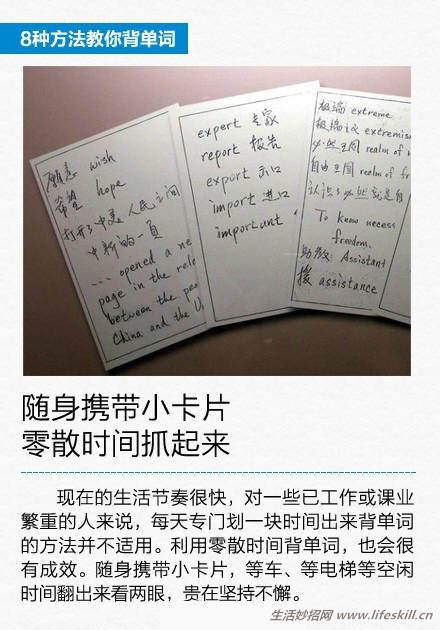 8种方法教你背单词
愿意 wish
希望 hope
打开了中美人民之间
中新的一頁
... opened a ne
page in the rele
between the peo
China and the U
expert 专家
report 报告
export 出口
import 进口
important
极端 extreme
极端主义 extremis
必然王国 realm of
自由王国 realm of fr
认识了必然就是自
To know necess
freedom.
助教: Assistant
援 assistance
随身携带小卡片
零散时间抓起来
现在的生活节奏很快，对一些已工作或课业
繁重的人来说，每天专门划一块时间出来背单词
的方法并不适用。利用零散时间背单词，也会很
有成效。随身携带小卡片，等车、等电梯等空闲
时间翻出来看两眼，贵在坚持不懈。
生活妙招网 www.lifeskill.cn